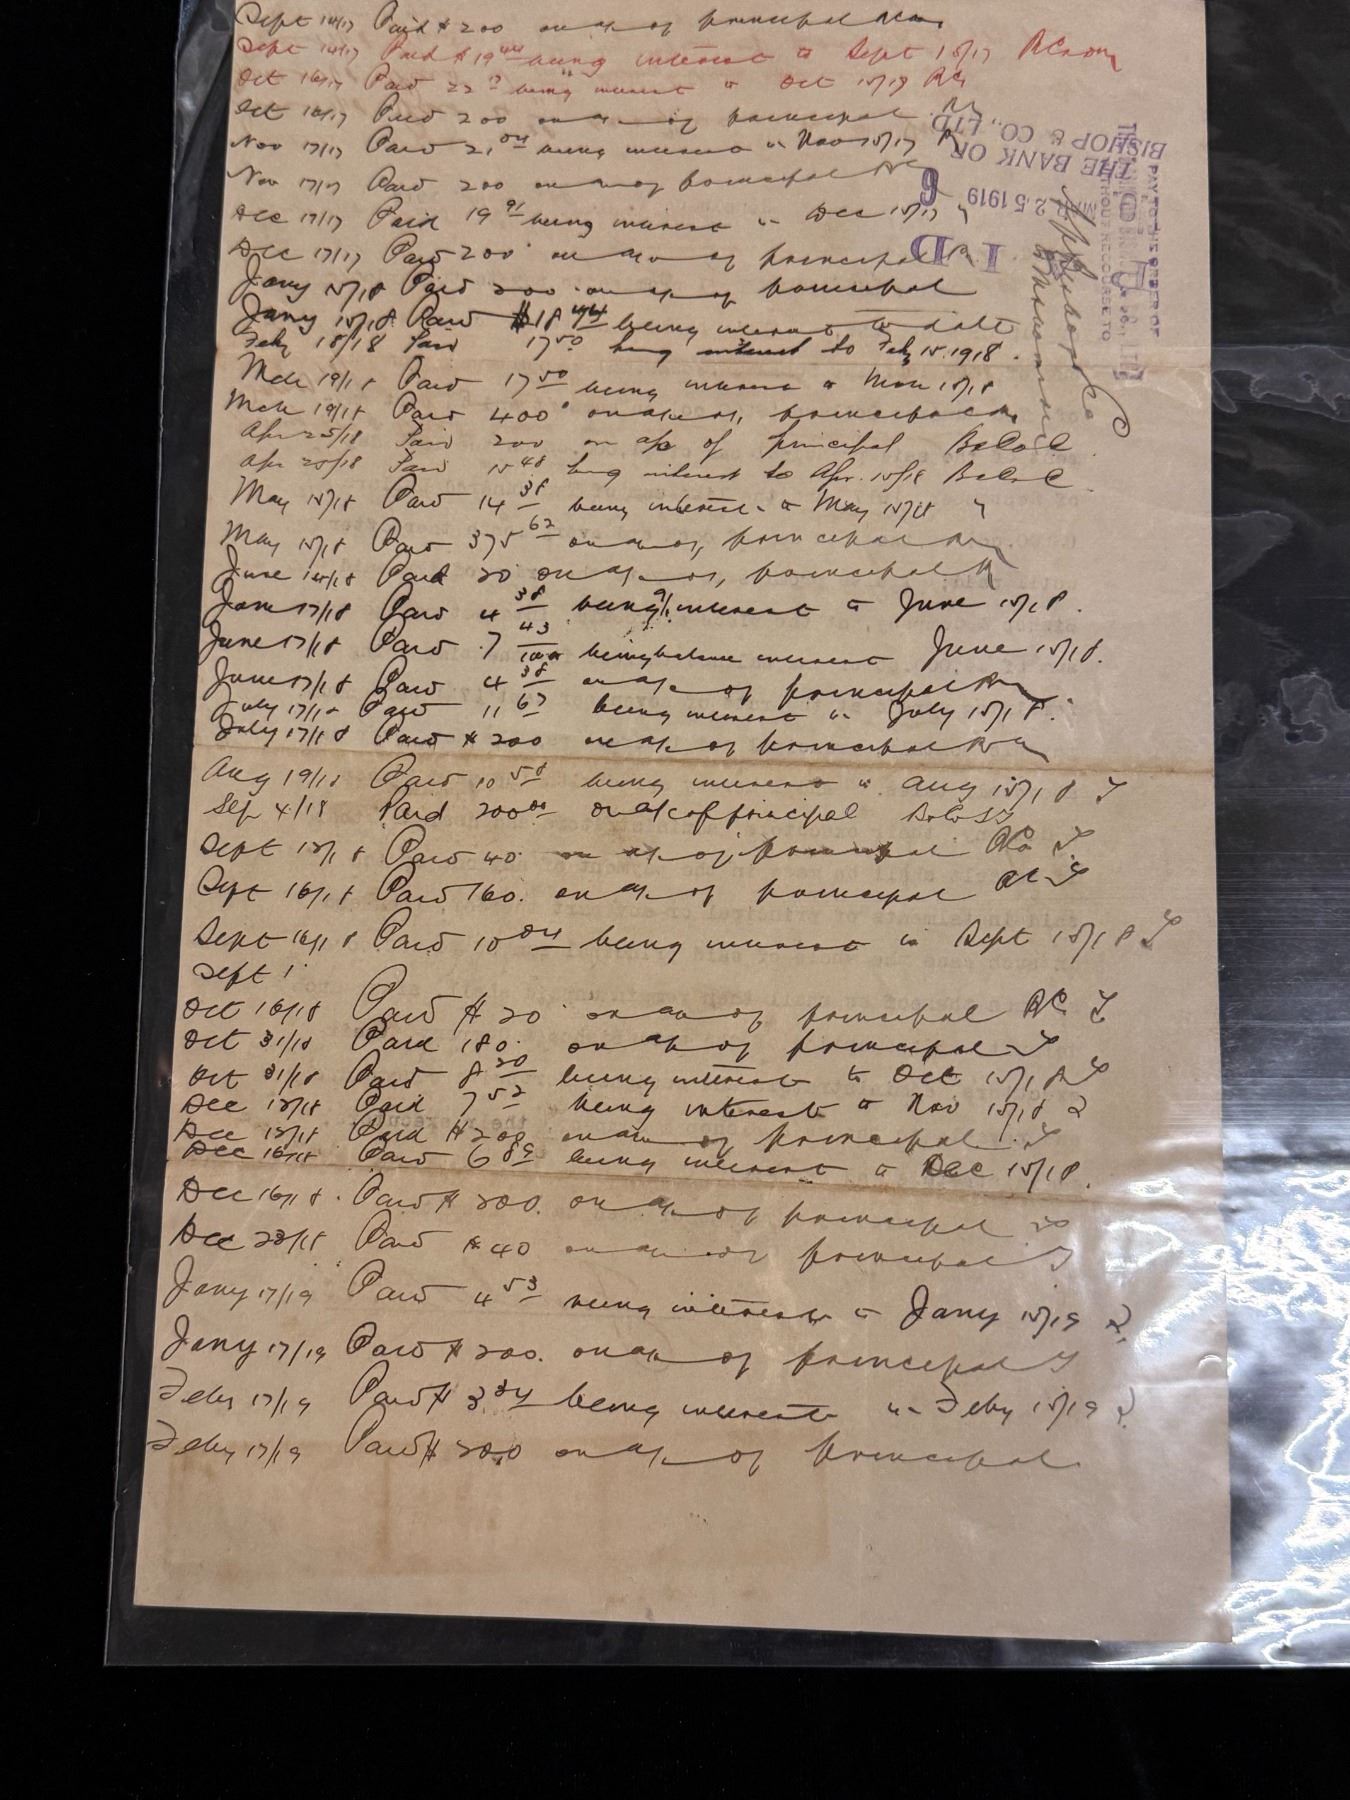 Sept 14/17 Paid $200 on a/c of principal
Sept 14/17 Paid $19 44 being interest to Sept 15/17
Oct 16/17 Paid 22 being interest to Oct 15/17
Oct 16/17 Paid 200 on a/c of principal
Nov 17/17 Paid 21 04 being interest to Nov 15/17
Nov 17/17 Paid 200 on a/c of principal
Dec 17/17 Paid 19 91 being interest to Dec 15/17
Dec 17/17 Paid 200 on a/c of principal
Jany 15/18 Paid 200 on a/c of principal
Jany 15/18 Paid $18 44 being interest to date
Feby 18/18 Paid 17 50 being interest to Feby 15.1918.
Mch 19/18 Paid 17 50 being interest to Mch 15/18
Mch 19/18 Paid 400 on a/c of principal
Apr 25/18 Paid 200 on a/c of principal
Apr 25/18 Paid 15 48 being interest to Apr. 15/18
May 15/18 Paid 14 38 being interest to May 15/18
May 15/18 Paid 375 62 on a/c of principal
June 14/18 Paid 20 on a/c of principal
June 17/18 Paid 4 38 being interest to June 15/18.
June 17/18 Paid 7 43/100 being balance interest June 15/18.
June 17/18 Paid 4 38 on a/c of principal
July 17/18 Paid 11 67 being interest to July 15/18.
July 17/18 Paid $200 on a/c of principal
Aug 19/18 Paid 10 58 being interest to Aug 15/18
Sep 4/18 Paid 200 00 on a/c of principal
Sept 13/18 Paid 40 on a/c of principal
Sept 16/18 Paid 160. on a/c of principal
Sept 16/18 Paid 10 04 being interest to Sept 15/18
Sept 1
Oct 16/18 Paid $20 on a/c of principal
Oct 31/18 Paid 180. on a/c of principal
Oct 31/18 Paid 8 20 being interest to Oct 15/18
Dec 13/18 Paid 7 52 being interest to Nov 15/18
Dec 13/18 Paid $200 on a/c of principal
Dec 16/18 Paid 6 89 being interest to Dec 15/18.
Dec 16/18. Paid $200. on a/c of principal
Dec 23/18 Paid $40 on a/c of principal
Jany 17/19 Paid 4 53 being interest to Jany 15/19
Jany 17/19 Paid $200. on a/c of principal
Feby 17/19 Paid $3 34 being interest to Feby 15/19
Feby 17/19 Paid $200 on a/c of principal
PAY TO THE ORDER OF
WITHOUT RECOURSE TO
THE BANK OF
BISHOP & CO., LTD.
MAR 25 1919